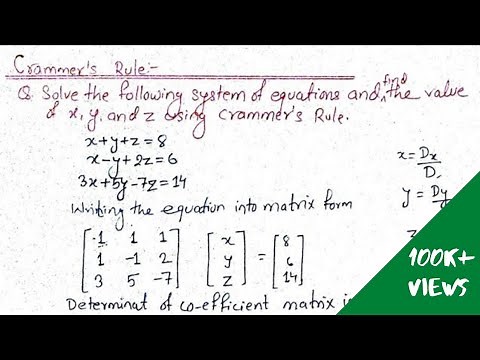 Crammer's Rule:-
Q. Solve the following system of equations and find the value
of x, y, and z using Crammer's Rule.
x+y+z=8
x-y+2z=6
3x+5y-7z=14
x = Dx/D
y = Dy
Writing the equation into matrix form
[-1 1 1] [x] [8]
[1 -1 2] [y] = [6]
[3 5 -7] [z] [14]
Determinat of co-efficient matrix
100K+
VIEWS